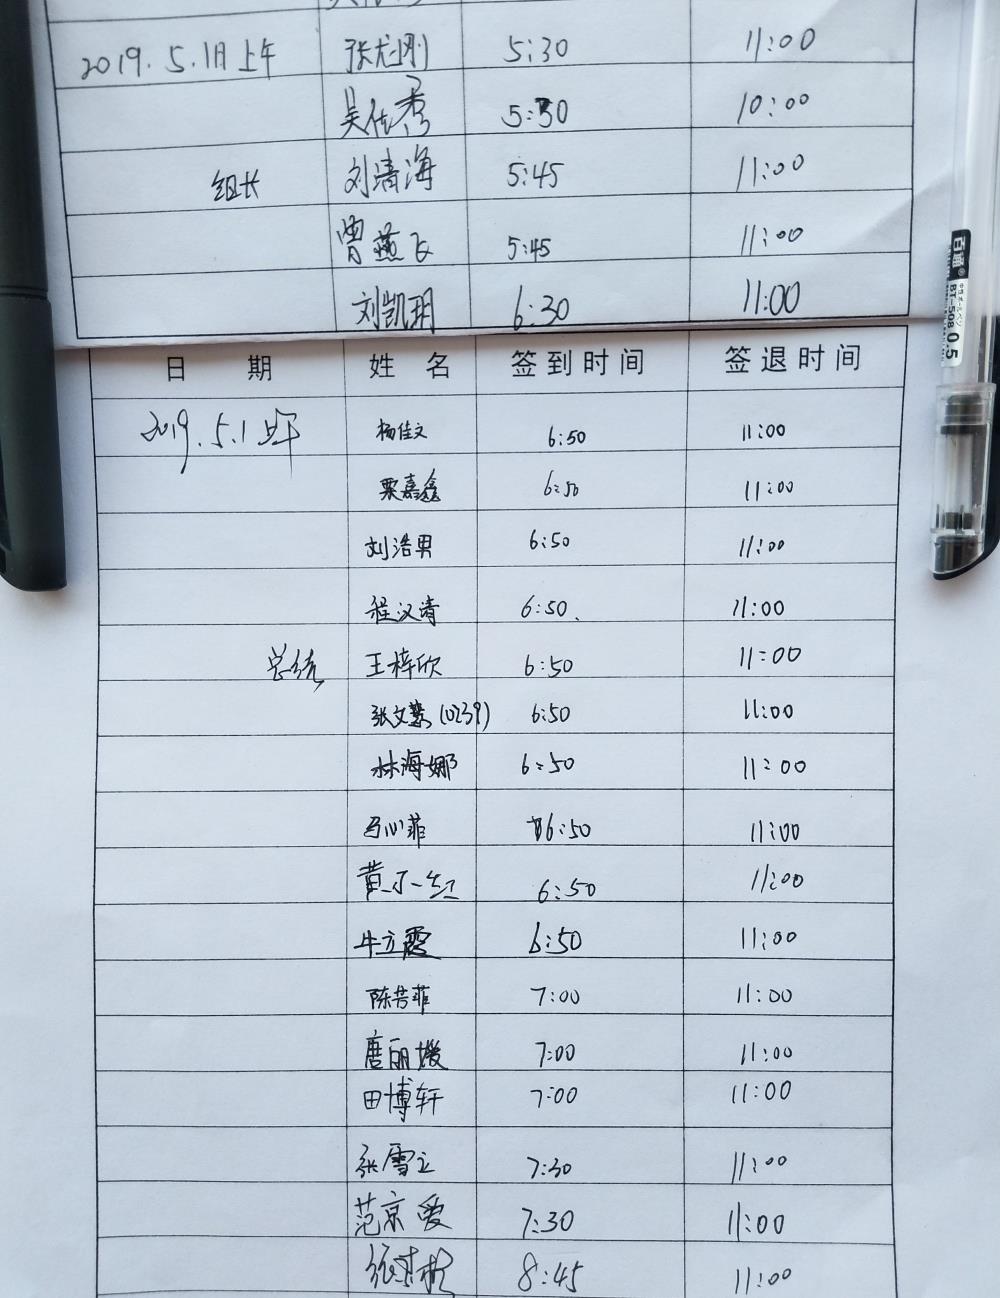 2019.5.1日上午 张龙刚 5:30 11:00
吴佐秀 5:30 10:00
组长 刘清海 5:45 11:00
曾燕飞 5:45 11:00
刘凯玥 6:30 11:00
日 期 姓 名 签到时间 签退时间
2019.5.1上午 杨佳文 6:50 11:00
栗嘉鑫 6:50 11:00
刘浩男 6:50 11:00
程汉清 6:50 11:00
总统 王梓欣 6:50 11:00
张文慧(0239) 6:50 11:00
林海娜 6:50 11:00
马心菲 6:50 11:00
黄 红 6:50 11:00
牛立霞 6:50 11:00
陈芳菲 7:00 11:00
唐丽媛 7:00 11:00
田博轩 7:00 11:00
张雪立 7:30 11:00
范京爱 7:30 11:00
8:45 11:00
百通
BT-508 0.5